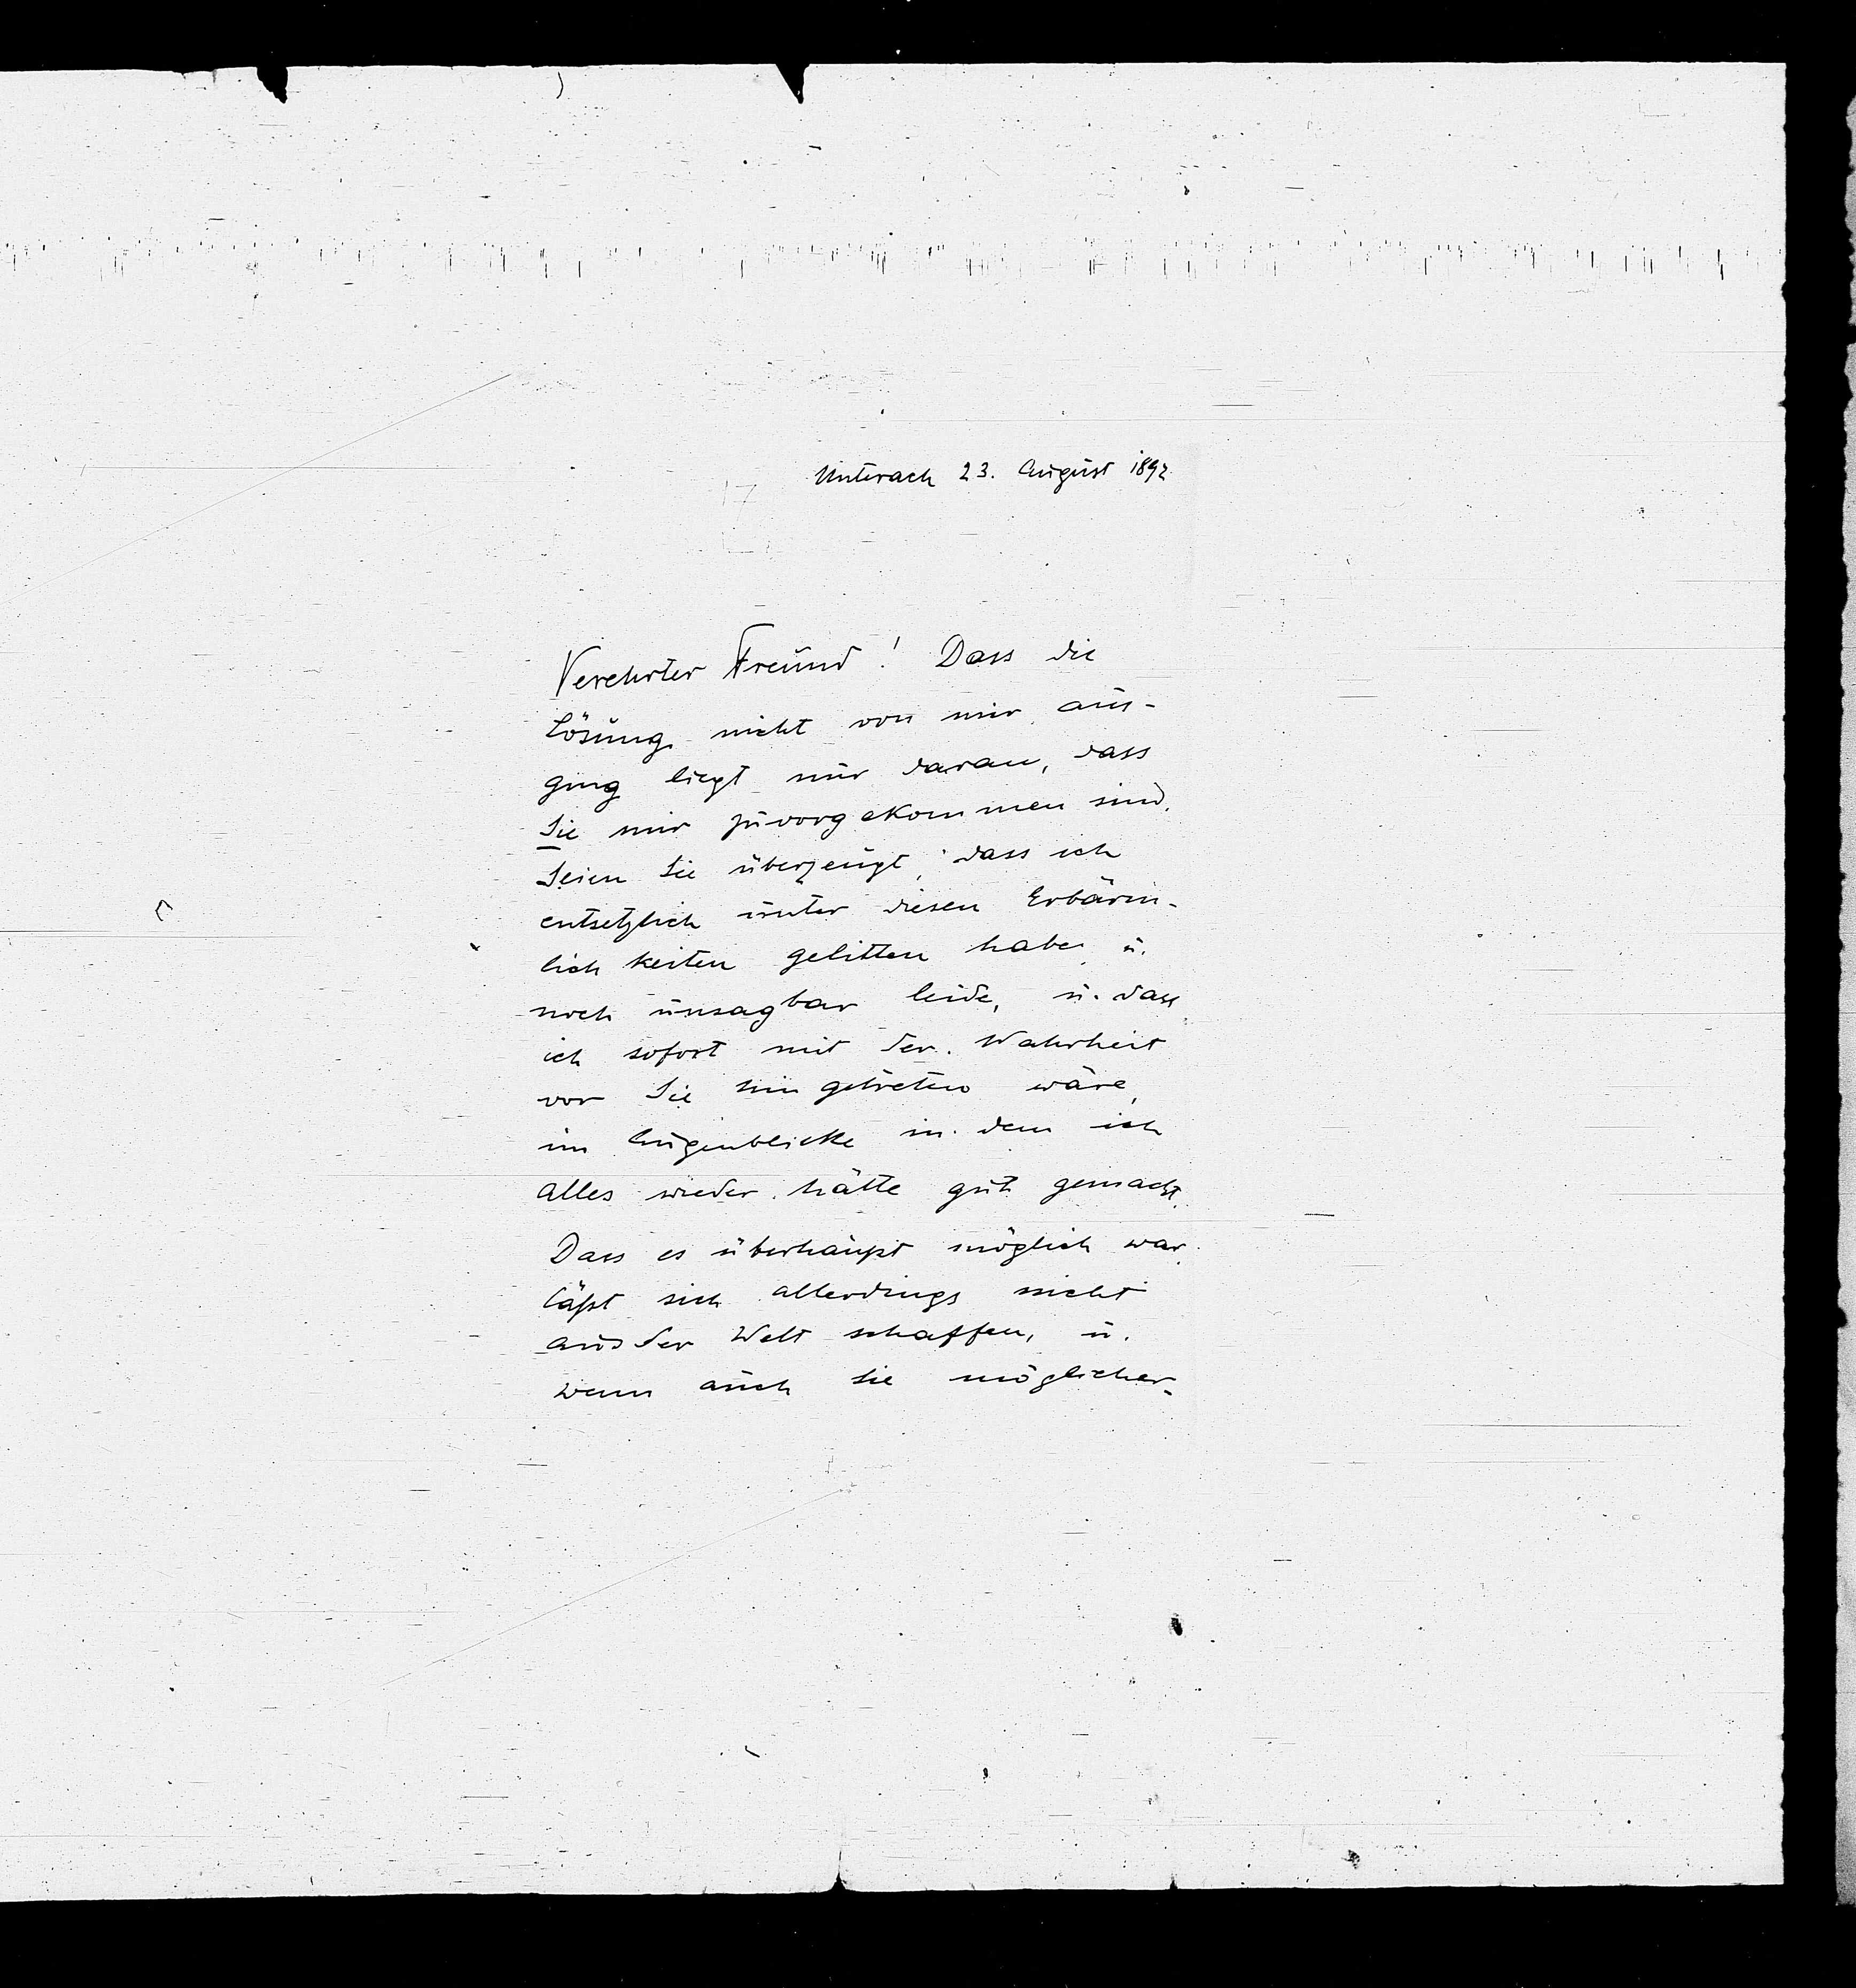 Unterach 23. August 1892
Verehrter Freund! Dass die
Lösung nicht von mir aus-
ging liegt nur daran, dass
Sie mir zuvorgekommen sind.
Seien Sie überzeugt, dass ich
entsetzlich unter diesen Erbärm-
lichkeiten gelitten habe u.
noch unsagbar leide, u. dass
ich sofort mit der Wahrheit
vor Sie hingetreten wäre,
im Augenblicke in dem ich
alles wieder hätte gut gemacht.
Dass es überhaupt möglich war,
läßt sich allerdings nicht
aus der Welt schaffen, u.
wenn auch Sie möglicher-